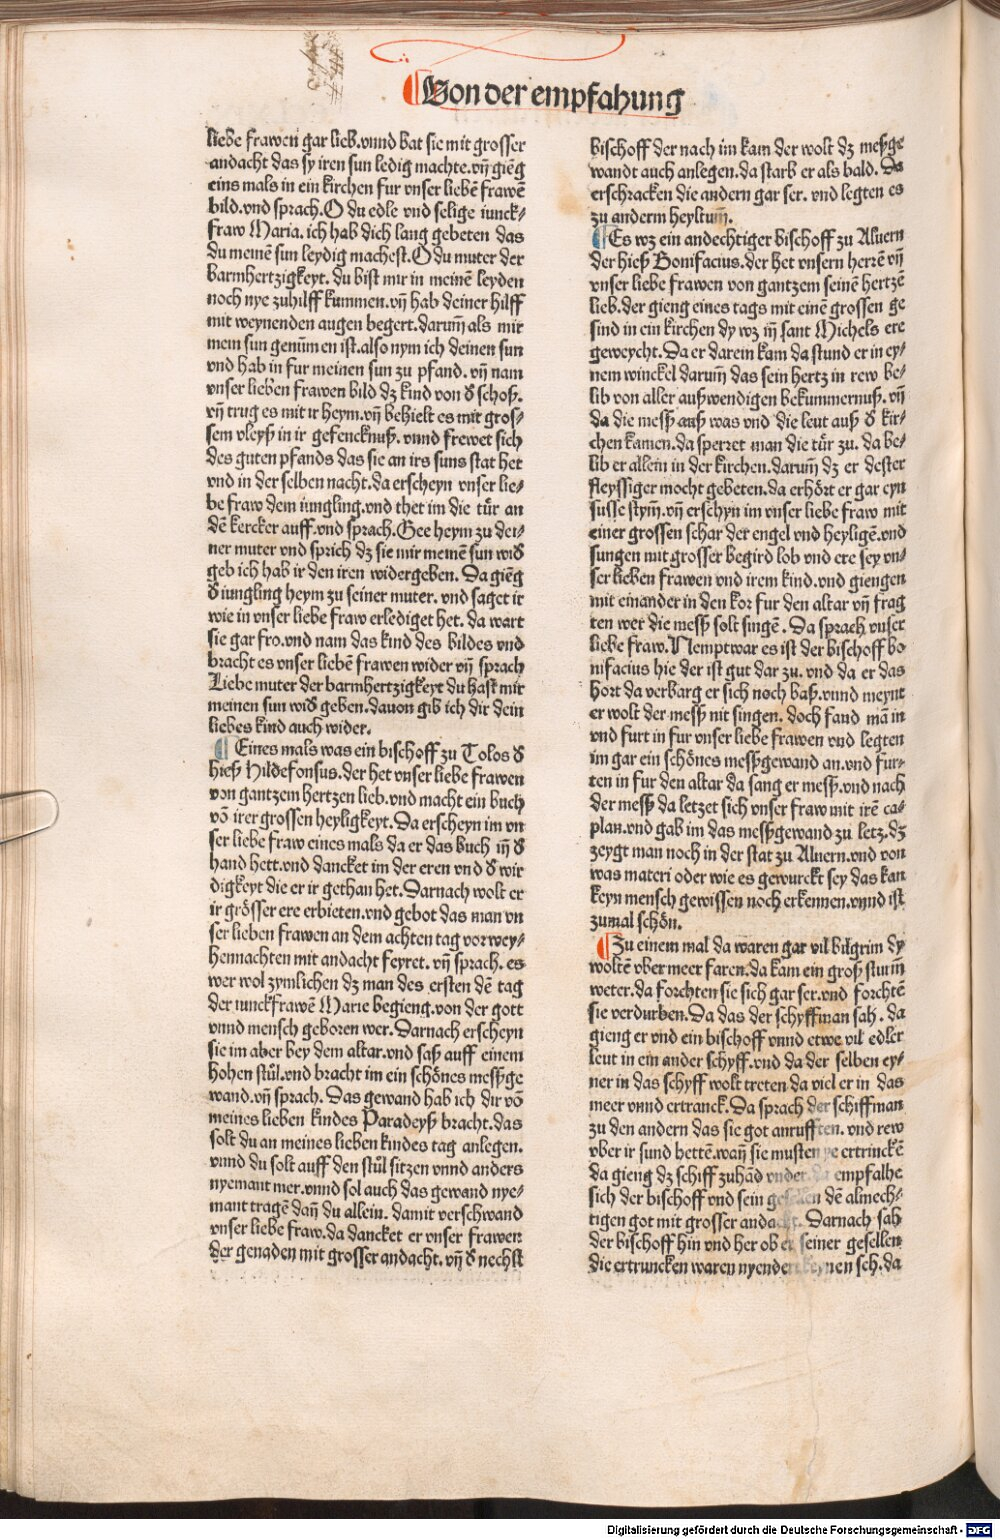 Von der empfahung
liebe frawen gar lieb. vnnd bat sie mit grosser
andacht das sy iren sun ledig machte. vñ gieng̃
eins mals in ein kirchen fur vnser liebē frawē
bild. vnd sprach. O du edle vnd selige iunck-
fraw Maria. ich hab dich lang gebeten das
du meinē sun leydig machest. O du muter der
barmhertzigkeyt. du bist mir in meinē leyden
noch nye zuhilff kummen. vñ hab deiner hilff
mit weynenden augen begert. darum̄ als mir
mein sun genūmen ist. also nym ich deinen sun
vnd hab in fur meinen sun zu pfand. vñ nam
vnser lieben frawen bild dz kind von d̕ schoß.
vñ trug es mit ir heym. vñ behielt es mit gros-
sem vleyß in ir gefencknuß. vnnd frewet sich
des guten pfands das sie an irs suns stat het
vnd in der selben nacht. da erscheyn vnser lie-
be fraw dem iungling. vnd thet im die tůr an
dē kercker auff. vnd sprach. Gee heym zu dei-
ner muter vnd sprich dz sie mir meinē sun wid̕
geb ich hab ir den iren widergeben. Da gieng̃
d̕ iungling heym zu seiner muter. vnd saget ir
wie in vnser liebe fraw erlediget het. da wart
sie gar fro. vnd nam das kind des bildes vnd
bracht es vnser liebē frawen wider vñ sprach
Liebe muter der barmhertzigkeyt du hast mir
meinen sun wid̕ geben. dauon gib ich dir dein
liebes kind auch wider.
¶ Eines mals was ein bischoff zu Tolos d̕
hieß Hildefonsus. der het vnser liebe frawen
von gantzem hertzen lieb. vnd macht ein buch
vō irer grossen heyligkeyt. Da erscheyn im vn
ser liebe fraw eines mals da er das buch iñ d̕
hand hett. vnd dancket im der eren vnd d̕ wir
digkeyt die er ir gethan het. Darnach wolt er
ir grösser ere erbieten. vnd gebot das man vn
ser lieben frawen an dem achten tag vor wey-
hennachten mit andacht feyret. vñ sprach. es
wer wol zymlichen dz man des ersten dē tag
der iunckfrawē Marie begieng. von der gott
vnnd mensch geboren wer. Darnach erscheyn
sie im aber bey dem altar. vnd saß auff einem
hohen stůl. vnd bracht im ein schönes meßge
wand. vñ sprach. Das gewand hab ich dir vō
meines lieben kindes Paradeyß bracht. das
solt du an meines lieben kindes tag anlegen.
vnnd du solt auff den stůl sitzen vnnd anders
nyemant mer. vnnd sol auch das gewand nye-
mant tragē dañ du allein. damit verschwand
vnser liebe fraw. da dancket er vnser frawen
der genaden mit grosser andacht. vñ d̕ nechst
bischoff der nach im kam der wolt dz meßge
wandt auch anlegen. da starb er als bald. Da
erschracken die andern gar ser. vnd legten es
zu anderm heyltum̄.
¶ Es wz ein andechtiger bischoff zu Aluern
der hieß Bonifacius. der het vnsern herrē vñ
vnser liebe frawen von gantzem seinē hertzē
lieb. der gieng eines tags mit einē grossen ge
sind in ein kirchen dy wz iñ sant Michels ere
geweycht. Da er darein kam da stund er in ey-
nem winckel darum̄ das sein hertz in rew be-
lib von aller außwendigen bekummernuß. vñ
da die meß auß was vnd die leut auß d̕ kir-
chen kamen. da sperret man die tůr zu. da be-
lib er allein in der kirchen. darum̄ dz er dester
fleyssiger mocht gebeten. da erhört er gar eyn
susse stym̄. vñ erschyn im vnser liebe fraw mit
einer grossen schar der engel vnd heyligē. vnd
sungen mit grosser begird lob vnd ere sey vn-
ser lieben frawen vnd irem kind. vnd giengen
mit einander in den kor fur den altar vñ frag
ten wer die meß solt singē. Da sprach vnser
liebe fraw. Nemptwar es ist der bischoff bo
nifacius hie der ist gut dar zu. vnd da er das
hort da verbarg er sich noch baß. vnnd meynt
er wolt der meß nit singen. doch fand mā in
vnd furt in fur vnser liebe frawen vnd legten
im gar ein schönes meßgewand an. vnd fur-
ten in fur den altar da sang er meß. vnd nach
der meß da letzet sich vnser fraw mit irē ca-
plan. vnd gab im das meßgewand zu letz. dz
zeygt man noch in der stat zu Aluern. vnd von
was materi oder wie es gewurckt sey das kan
keyn mensch gewissen noch erkennen. vnnd ist
zumal schön.
¶ Zu einem mal da waren gar vil bilgrim dy
woltē vber meer faren. da kam ein groß sturm̄
weter. da forchten sie sich gar ser. vnd forchtē
sie verdurben. Da das der schyffman sah. da
gieng er vnd ein bischoff vnnd etwe vil edler
leut in ein ander schyff. vnd da der selben ey-
ner in das schyff wolt treten da viel er in das
meer vnnd ertranck. Da sprach der schiffman
zu den andern das sie got anrufften. vnd rew
vber ir sund hettē. wañ sie musten ye ertrinckē
da gieng dz schiff zuhād vnder. da empfalhe
sich der bischoff vnd sein gesellen dē almech-
tigen got mit grosser andacht. Darnach sah
der bischoff hin vnd her ob er seiner gesellen
die ertruncken waren nyendert keynen seh. da
Digitalisierung gefördert durch die Deutsche Forschungsgemeinschaft - DFG